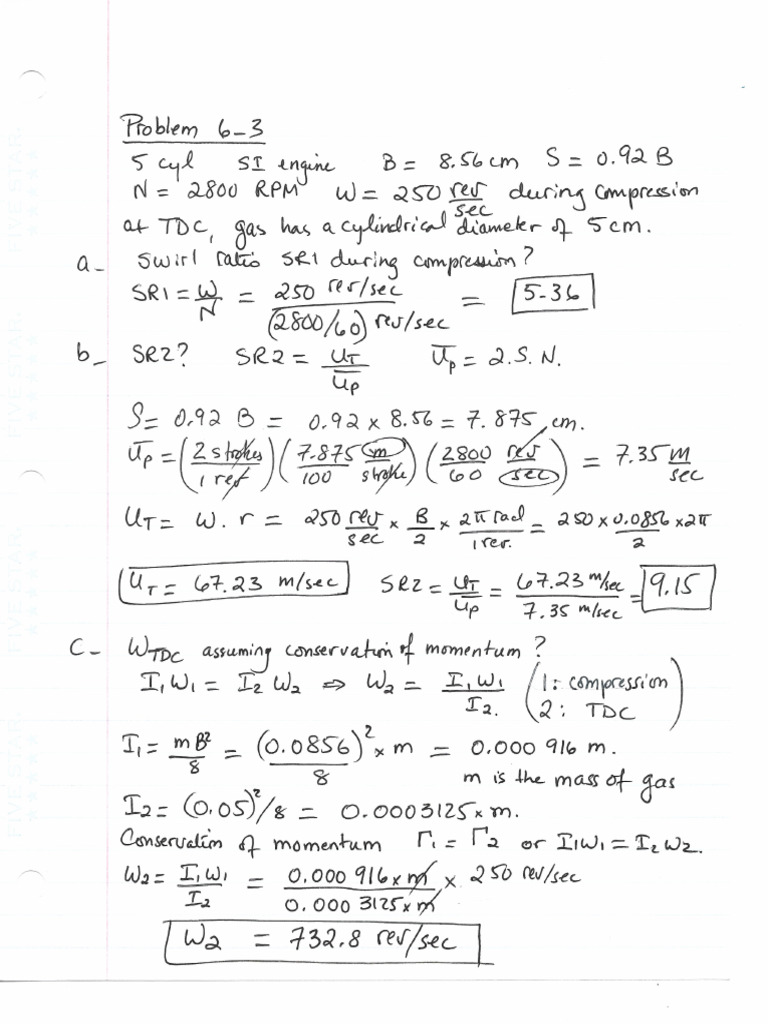 Problem 6-3
5 cyl SI engine B = 8.56 cm S = 0.92 B
N = 2800 RPM W = 250 rev/sec during compression
at TDC, gas has a cylindrical diameter of 5 cm.
a- Swirl ratio SR1 during compression?
SR1 = W/N = 250 rev/sec / (2800/60) rev/sec = 5-36
b- SR2? SR2 = U_T/U̅p U̅p = 2.S.N.
S = 0.92 B = 0.92 x 8.56 = 7.875 cm.
U̅p = (2 strokes / 1 rev) (7.875 m / 100 stroke) (2800 rev / 60 sec) = 7.35 m/sec
U_T = W.r = 250 rev/sec x B/2 x 2π rad/1 rev. = 250 x 0.0856 x 2π / 2
U_T = 67.23 m/sec SR2 = U_T/U̅p = 67.23 m/sec / 7.35 m/sec = 9.15
C- W_TDC assuming conservation of momentum?
I₁W₁ = I₂W₂ ⇒ W₂ = I₁W₁/I₂. (1: compression
2: TDC)
I₁ = mB²/8 = (0.0856)²/8 x m = 0.000 916 m.
m is the mass of gas
I₂ = (0.05)²/8 = 0.0003125 x m.
Conservation of momentum Γ₁ = Γ₂ or I₁W₁ = I₂W₂.
W₂ = I₁W₁/I₂ = 0.000 916 x m / 0.000 3125 x m x 250 rev/sec
W₂ = 732.8 rev/sec
FIVE STAR.
FIVE STAR.
FIVE STAR.
FIVE STAR.